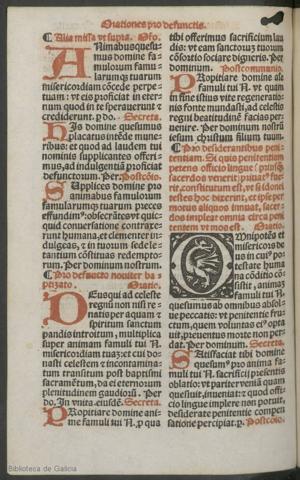 Orationes pro defunctis.
Alia missa vt supra. Oro.
ANimabus quesumus
domine famulorum
famularumqȝ tuarum
misericordiam cōcede perpetuam:
vt eis proficiat in eternum
quod in te sperauerunt ⁊
crediderunt. p̄ do. Secreta.
HIs domine quesumus
placatus intēde muneribus:
et quod ad laudem tui
nominis supplicantes offerimus,
ad indulgentiā proficiat
defunctorum. Per. Postcōio.
SUpplices domine pro
animabus famulorum
famularumqȝ tuarum preces
effundimꝰ: obsecrātes vt quicquid
conuersatione contraxerunt
humana, ⁊ clementer indulgeas,
⁊ in tuorum sede letantium
cōstituas redemptorum.
Per dominum nostrum.
Pro defuncto nouiter baptizato.
Oratio.
DEus qui ad celeste
regnū non nisi renatis
per aquam ⁊
spiritum sanctum
pandis introitum, multiplica
super animam famuli tui N.
misericordiam tuā: et cui donasti
celestem ⁊ incontaminatum
transitum post baptismi
sacramētum, da ei eternorum
plenitudinem gaudiorū. Per
do. In vnita. eiusdē. Secreta.
PRopitiare domine anime
famuli tui N. p̄ qua
tibi offerimus sacrificium laudis:
vt eam sanctoruȝ tuorum
cōsortio sociare digneris. Per
dominum. Postcommunio.
PRopitiare domine aīe
famuli tui N. vt quam
in fine istius vite regenerationis
fonte mundasti, ad celestis
regni beatitudinē facias peruenire.
Per dominum nostrū
iesum christum filium tuum.
Pro desiderantibus penitentiam.
Si quis penitentiam
petens officio lingue
OMnipotēs et
misericors deus
in cuiꝰ potestate
humana
cōditio cōsistit,
animā
famuli tui N.
quesumus ab omnibus absolue
peccatis: vt penitentie fructum,
quem voluntas eiꝰ optauit,
preuentus morte non perdat.
Per dominum. Secreta.
SAtisfaciat tibi domine
quesumꝰ pro anima famuli
tui N. sacrificij presentis
oblatio: vt pariter veniā quam
quesiuit, inueniat: ⁊ quod officio
lingue implere non potuit,
desiderate penitentie compensatione
percipiat. p̄. Postcōio.
Biblioteca de Galicia